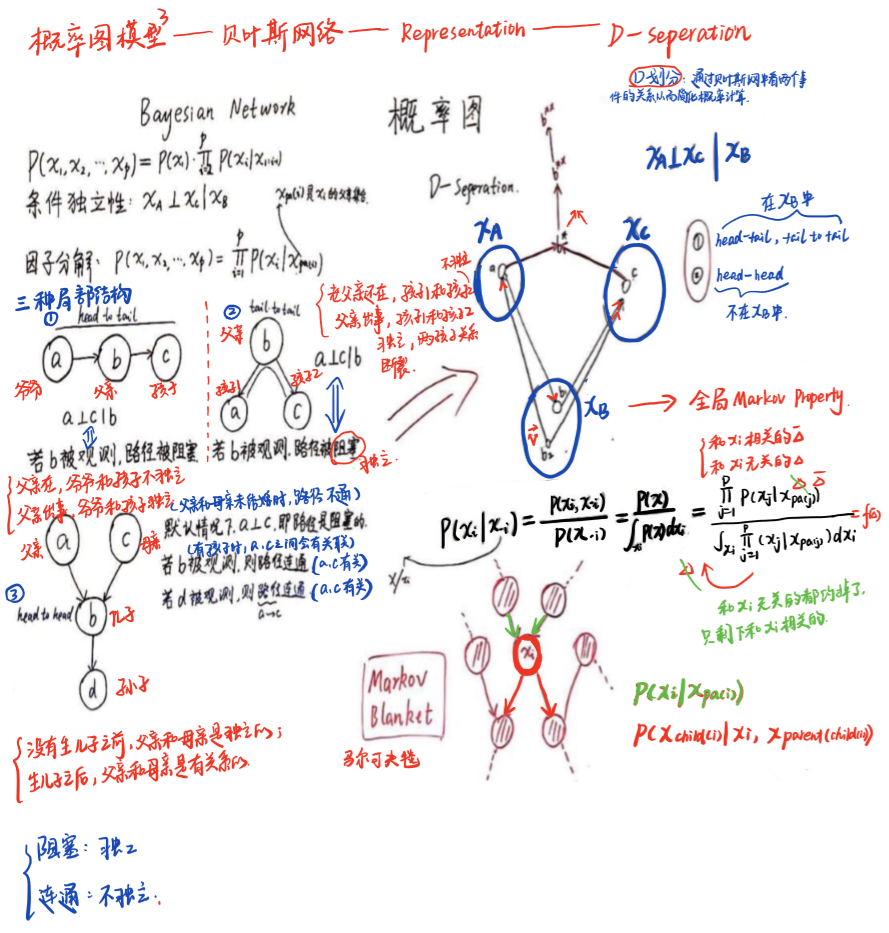 概率图模型³ — 贝叶斯网络 — Representation — D-seperation
D划分: 通过贝叶斯网中看两个事
件的关系从而简化概率计算.
Bayesian Network
概率图
P(x₁,x₂,…,xₚ)=P(x₁)·∏ᵖᵢ₌₂ P(xᵢ|x₁:ᵢ₋₁)
条件独立性: x_A⊥x_C|x_B
x_pa(i)是xᵢ的父亲集合
因子分解: P(x₁,x₂,…,xₚ)=∏ᵖᵢ₌₁P(xᵢ|x_pa(i))
D-Seperation.
x_A⊥x_C | x_B
在x_B中
① head-tail, tail to tail
② head-head
不在x_B中.
x_A
x_C
x_B
a
c
b₁
b₂
b*
b**
b**
三种局部结构
① head to tail
a b c
爷爷 父亲 孩子
a⊥c|b
若b被观测,路径被阻塞
父亲在,爷爷和孩子不独立
父亲出事,爷爷和孩子独立
② tail to tail
父亲
b
孩子1 孩子2
a c
a⊥c|b
若b被观测.路径被阻塞
独立.
不独立
老父亲在,孩子1和孩子2
父亲出事,孩子1和孩子2
独立,两孩子关系
断裂.
→ 全局Markov Property.
和xᵢ相关的Δ̄
和xᵢ无关的Δ
P(xᵢ|x₋ᵢ)=P(xᵢ,x₋ᵢ)/P(x₋ᵢ)=P(x)/∫ₓᵢP(x)dxᵢ=∏ᵖⱼ₌₁P(xⱼ|x_pa(j))/∫ₓᵢ∏ᵖⱼ₌₁(xⱼ|x_pa(j))dxᵢ=f(Δ̄)
x/xᵢ
和xᵢ无关的都约掉了,
只剩下和xᵢ相关的.
③ head to head
父亲 母亲
a c
b 儿子
d 孙子
(父亲和母亲未结婚时,路径不通)
默认情况下.a⊥c,即路径是阻塞的.
(有孩子时,a,c之间会有关联)
若b被观测,则路径连通(a,c有关)
若d被观测,则路径连通(a,c有关)
a→c
没有生儿子之前,父亲和母亲是独立的;
生儿子之后,父亲和母亲是有关系的.
Markov
Blanket
马尔可夫毯
xᵢ
P(xᵢ|x_pa(i))
P(x_child(i)|xᵢ, x_parent(child(i)))
阻塞: 独立
连通: 不独立.